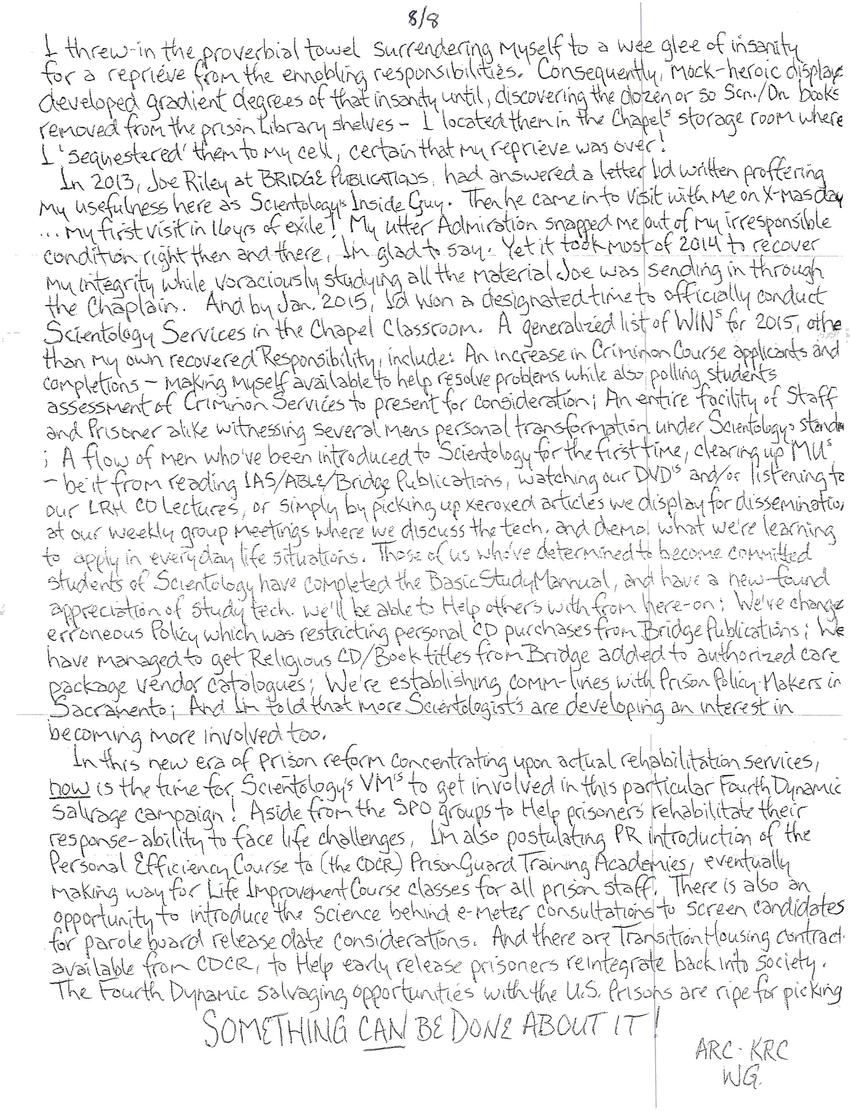 8/8
I threw-in the proverbial towel surrendering myself to a wee glee of insanity
for a reprieve from the ennobling responsibilities. Consequently, mock-heroic displays
developed gradient degrees of that insanity until, discovering the dozen or so Scn./Dn. books
removed from the prison Library shelves – I located them in the Chapel's storage room where
I 'sequestered' them to my cell, certain that my reprieve was over!
In 2013, Joe Riley at BRIDGE PUBLICATIONS, had answered a letter I'd written proffering
my usefulness here as Scientology's Inside Guy. Then he came in to visit with me on X-mas day
... my first visit in 16yrs of exile! My utter Admiration snapped me out of my irresponsible
condition right then and there, I'm glad to say. Yet it took most of 2014 to recover
my integrity while voraciously studying all the material Joe was sending in through
the Chaplain. And by Jan. 2015, I'd won a designated time to officially conduct
Scientology Services in the Chapel Classroom. A generalized list of WINs for 2015, othe
than my own recovered Responsibility, include: An increase in Criminon Course applicants and
completions – making myself available to help resolve problems while also polling students
assessment of Criminon Services to present for consideration; An entire facility of Staff
and Prisoner alike witnessing several mens personal transformation under Scientology's standa
; A flow of men who've been introduced to Scientology for the first time, clearing up MUs
– be it from reading IAS/ABLE/Bridge Publications, watching our DVD's and/or listening to
our LRH CD Lectures, or simply by picking up xeroxed articles we display for disseminatio
at our weekly group meetings where we discuss the tech. and demo. what we're learning
to apply in everyday life situations. Those of us who've determined to become committed
students of Scientology have completed the Basic Study Mannual, and have a new-found
appreciation of study tech. we'll be able to Help others with from here-on; We've change
erroneous Policy which was restricting personal CD purchases from Bridge Publications; We
have managed to get Religious CD/Book titles from Bridge added to authorized care
package vendor catalogues; We're establishing comm-lines with Prison Policy-Makers in
Sacramento; And I'm told that more Scientologist's are developing an interest in
becoming more involved too.
In this new era of prison reform concentrating upon actual rehabilitation services,
now is the time for Scientology's VM's to get involved in this particular Fourth Dynamic
salvage campaign! Aside from the SPO groups to Help prisoners rehabilitate their
response-ability to face life challenges, I'm also postulating PR introduction of the
Personal Efficiency Course to (the CDCR) Prison Guard Training Academies, eventually
making way for Life Improvement Course classes for all prison staff. There is also an
opportunity to introduce the science behind e-meter consultations to screen candidates
for parole board release date considerations. And there are Transition Housing contract
available from CDCR, to Help early release prisoners reintegrate back into society.
The Fourth Dynamic salvaging opportunities with the U.S. Prisons are ripe for picking
SOMETHING CAN BE DONE ABOUT IT!
ARC-KRC
WG.